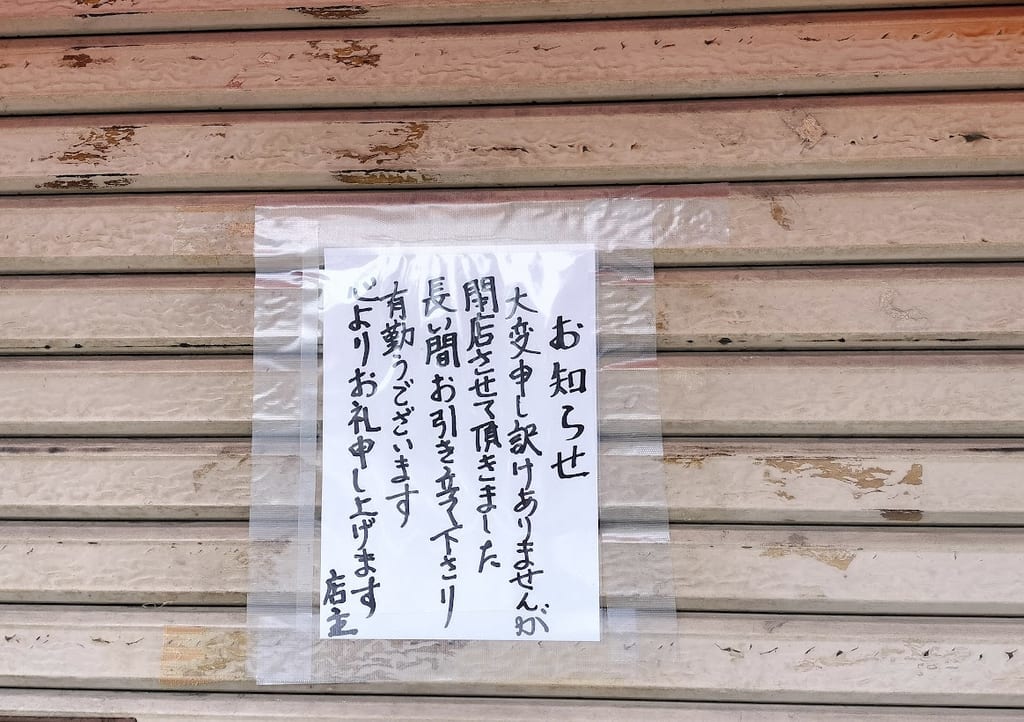 お知らせ
大変申し訳けありませんが
閉店させて頂きました
長い間お引き立て下さり
有勤うございます
心よりお礼申し上げます
店主